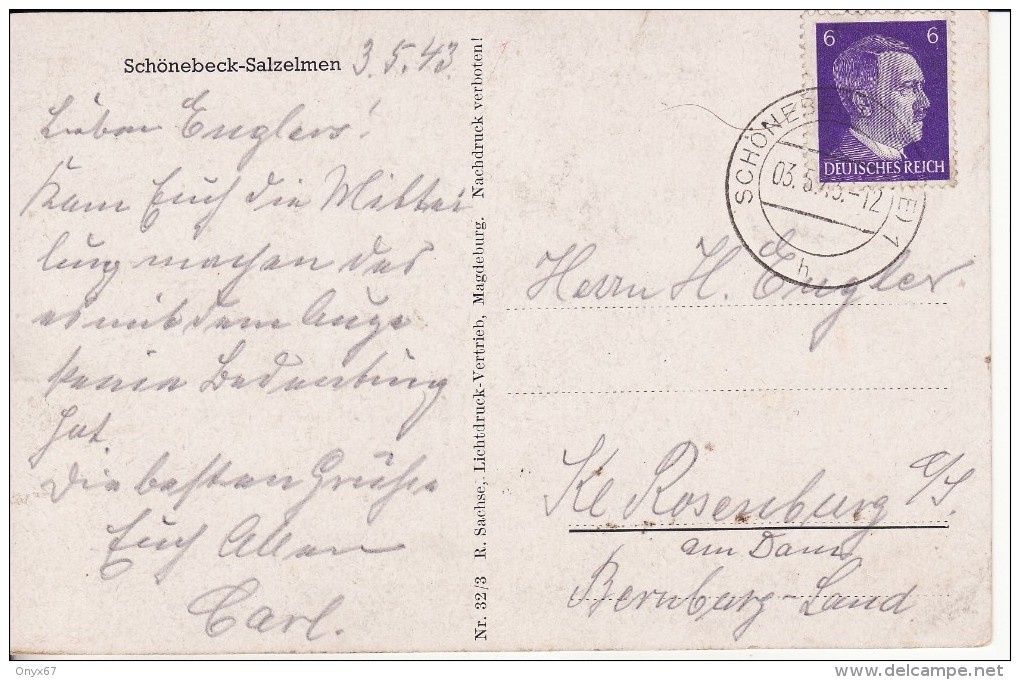 Schönebeck-Salzelmen 3.5.43
Lieben Englers!
Kann Euch die Mittei
lung machen das
es mit dem Auge
keine Bedeutung
hat.
Die besten Grüße
Euch Allen
Carl.
Nr. 32/3 R. Sachse, Lichtdruck-Vertrieb, Magdeburg. Nachdruck verboten!
6 6
DEUTSCHES REICH
SCHÖNEB E) 1
03.5.43.-12
h
Herrn H. Engler.
Kl Rosenburg a/S.
am Damm
Bernburg-Land
Onyx67
delcampe.net